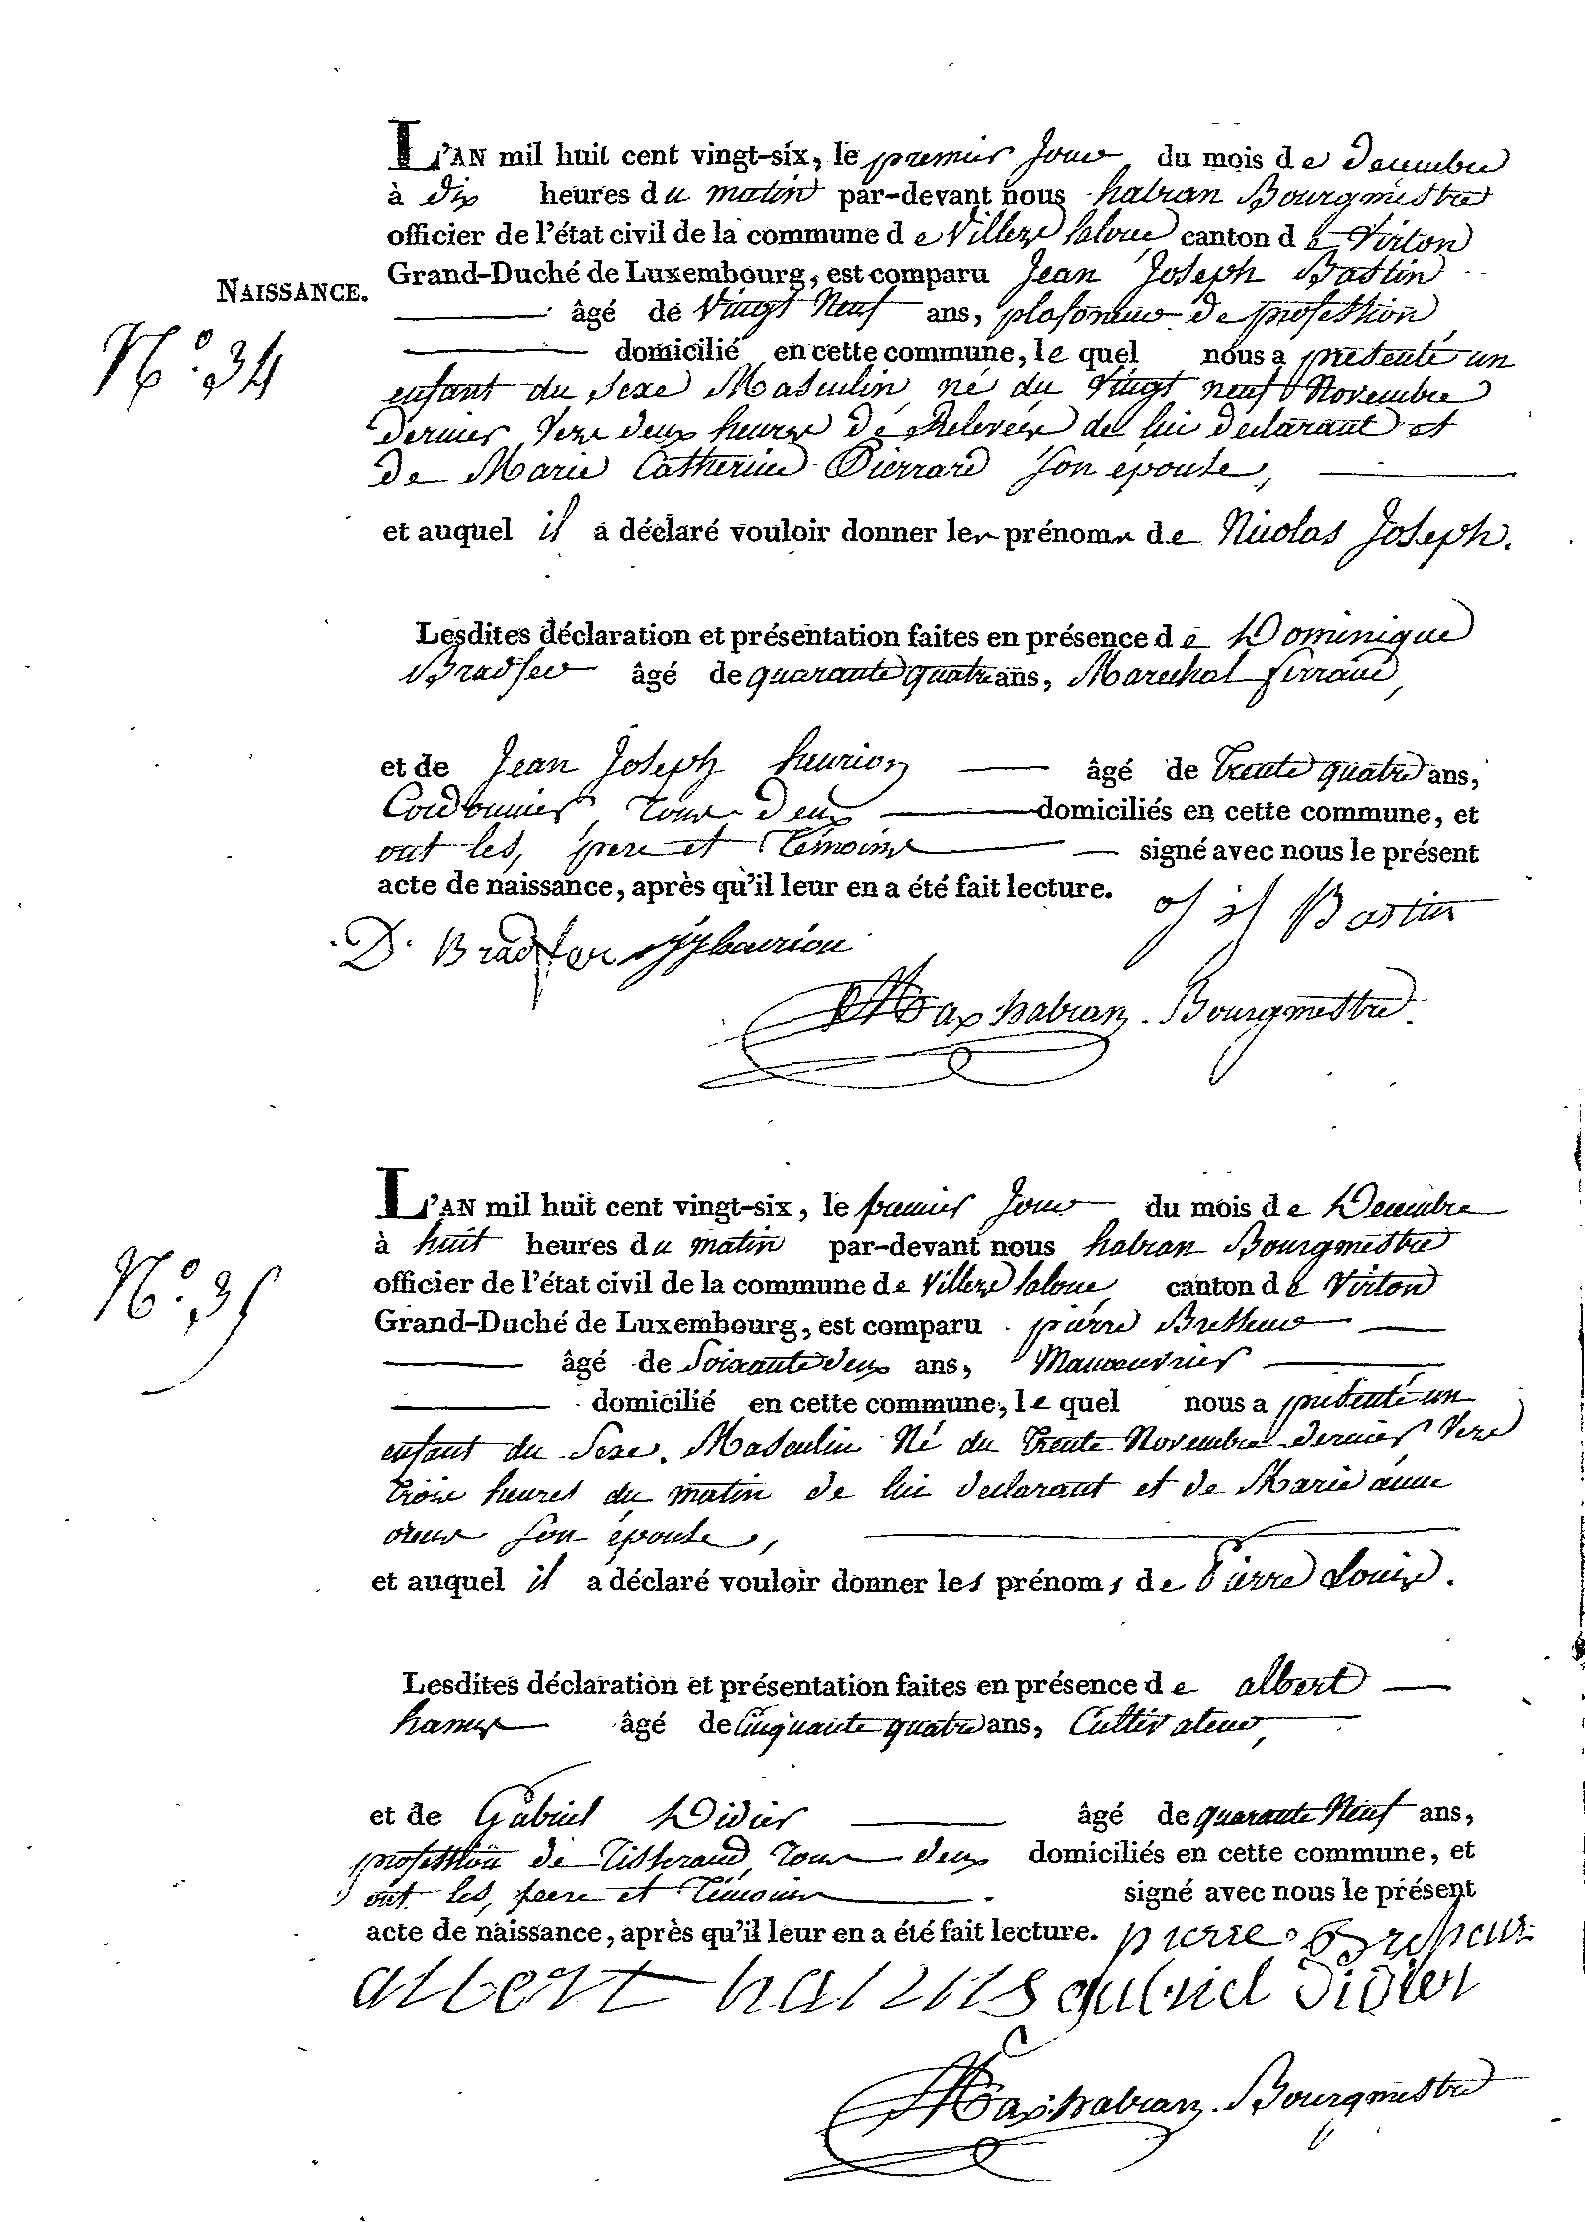 L'AN mil huit cent vingt-six, le premier Jour du mois de Decembre
à dix heures du matin par-devant nous habran Bourgmestre
officier de l'état civil de la commune de Villers laloue canton de Virton
Grand-Duché de Luxembourg, est comparu Jean Joseph Bastin
NAISSANCE.
âgé de Vingt Neuf ans, plafoneur de profession
N.° 34
domicilié en cette commune, le quel nous a presenté un
enfant du Sexe Masculin né du Vingt neuf Novembre
dernier Vers deux heures de Relevées de lui declarant et
de Marie Catherine Pierrard Son épouse,
et auquel il a déclaré vouloir donner les prénoms de Nicolas Joseph.
Lesdites déclaration et présentation faites en présence de Dominique
Bradfer âgé de quarante quatre ans, Marechal ferrant,
et de Jean Joseph heurion âgé de Trente quatre ans,
Cordonnier, Tous deux domiciliés en cette commune, et
ont les, pere et Témoins signé avec nous le présent
acte de naissance, après qu'il leur en a été fait lecture.
J j Bastin
D. Bradfer jjheurion
Max habran Bourgmestre
L'AN mil huit cent vingt-six, le premier Jour du mois de Decembre
à huit heures du matin par-devant nous habran Bourgmestre
N.° 35
officier de l'état civil de la commune de Villers laloue canton de Virton
Grand-Duché de Luxembourg, est comparu pierre Bresseur
âgé de Soixante deux ans, Manoeuvrier
domicilié en cette commune, le quel nous a presenté un
enfant du Sexe. Masculin Né du Trente Novembre dernier Vers
trois heures du matin de lui declarant et de Marie anne
Son épouse,
et auquel il a déclaré vouloir donner les prénoms de Pierre Louis.
Lesdites déclaration et présentation faites en présence de albert
âgé de Cinquante quatre ans, Cultivateur,
et de Gabriel Didier âgé de quarante Neuf ans,
profession de Tisserand Tous deux domiciliés en cette commune, et
ont les, pere et Témoins signé avec nous le présent
acte de naissance, après qu'il leur en a été fait lecture. pierre
albert gabriel Didier
Max habran Bourgmestre